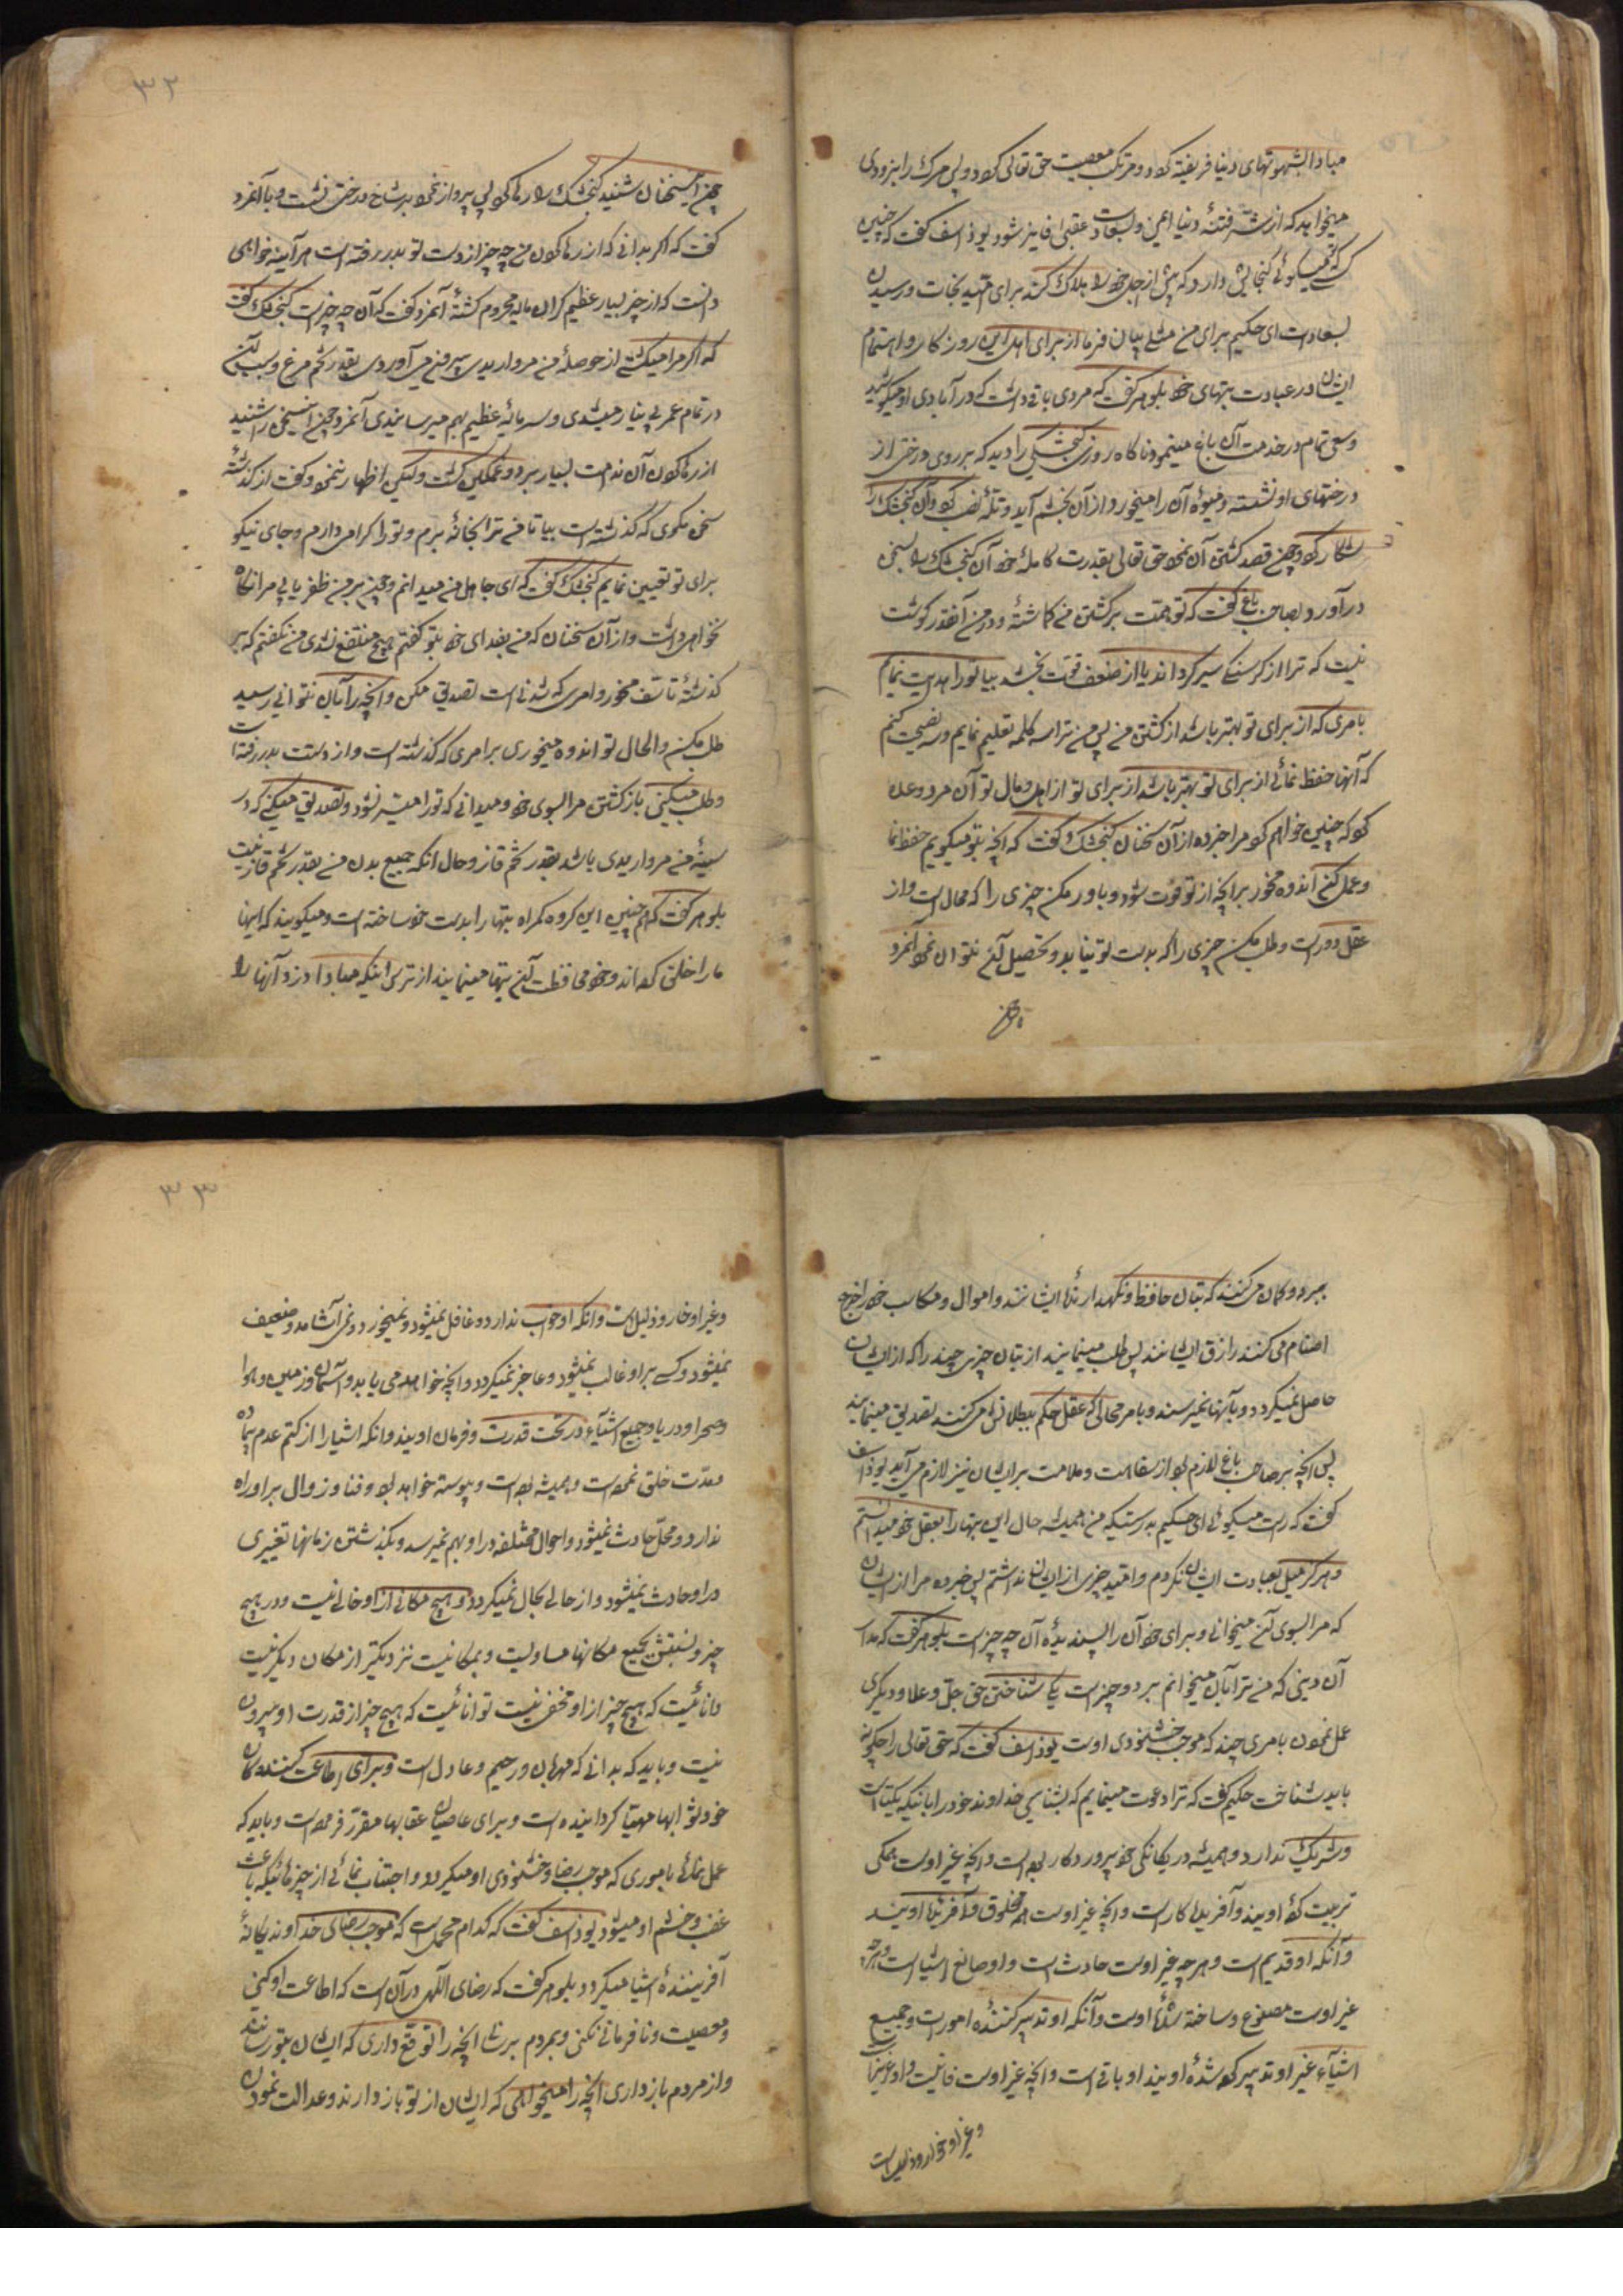 مبادا بشهوتهای دنیا فریفته کردد و مرتکب معصیت حق تعالی کردد و پس مرک را بزودی
میخواهد که از شر فتنهٔ دنیا ایمن و بسعادت عقبی فایز شود یوذاسف کفت که چنین
کسی که تو میکوئی کنجایش دارد که پیش از اجل خود را هلاک کند برای امید نجات و رسیدن
بسعادت ای حکیم برای من مثلی بیان فرما از برای اهل این روزکار و اهتمام
ایشان در عبادت بتهای خود بلوهر کفت که مردی باغی داشت که در آبادی او میکوشید
و سعی تمام در خدمت آن باغ مینمود ناکاه روزی کنجشکی را دید که بر روی درختی از
درختهای او نشسته و میوهٔ آن را میخورد از آن بخشم آید و تلهٔ نصب کرد و آن کنجشک را
شکار کرد و چون قصد کشتن آن نمود حق تعالی بقدرت کاملهٔ خود آن کنجشک را بسخن
درآورد و بصاحب باغ کفت که تو همت بر کشتن من کماشتهٔ و در من آنقدر کوشت
نیست که ترا از کرسنکی سیر کرداند یا از ضعف قوت بخشد بیا تو را هدایت نمایم
بامری که از برای تو بهتر باشد از کشتن من پس من ترا سه کلمه تعلیم نمایم و سه نصیحت کنم
که آنها حفظ نمائی از برای تو بهتر باشد از برای تو از اهل و مال تو آن مرد وعده
کرد که چنین خواهم کرد مرا خبر ده از آن سخنان کنجشک کفت که آنچه بتو میکویم حفظ نما
و عمل کن اندوه مخور بر آنچه از تو فوت شود و باور مکن چیزی را که محال است و از
عقل دور است و طلب مکن چیزی را که بدست تو نیاید و تحصیل آن نتوان نمود آنمرد
چون
۳۲
چون این سخنان شنید کنجشک را رها کرد پس پرواز نمود بر شاخ درختی نشست و بآنمرد
کفت که اکر بدانی که از رها کردن من چه چیز از دست تو بدر رفته است هرآینه خواهی
دانست که از چیز بسیار عظیم کران مایه محروم کشتهٔ آنمرد کفت که آن چه چیز است کنجشک کفت
که اکر مرا میکشتی از حوصلهٔ من مرواریدی بیرون می آوردی بقدر تخم مرغ و بسبب آن
در تمام عمر بی نیاز میشدی و سرمایهٔ عظیم بهم میرسانیدی آنمرد چون این سخن را شنید
از رها کردن آن ندامت بسیار برد و غمکین کشت ولیکن اظهار ننمود و کفت از کذشته
سخن مکوی که کذشته است بیا تا من ترا بخانهٔ برم و تو را کرامی دارم و جای نیکو
برای تو تعیین نمایم کنجشک کفت که ای جاهل من میدانم و چون بر من ظفر یابی مرا نکاه
نخواهی داشت و از آن سخنان که من بفدای خود بتو کفتم هیچ منتفع نشدی من نکفتم که بر
کذشته تاسف مخور و امری که شدنی است تصدیق مکن و آنچه را بآن نتوانی رسید
طلب مکن و الحال تو اندوه میخوری بر امری که کذشته است و از دستت بدر رفته است
و طلب میکنی باز کشتن مرا بسوی خود و میدانی که تو را میسر نشود و تصدیق میکنی که در
سینهٔ من مرواریدی باشد بقدر تخم قاز و حال آنکه جمیع بدن من بقدر تخم قاز نیست
بلوهر کفت که هم چنین این کروه کمراه بتها را بدست خود ساخته است و میکویند که اینها
ما را خلق کرده اند و خود محافظت آن بتها مینمایند از ترس اینکه مبادا دزد آنها را
ببرد و کمان می کنند که بتان حافظ و نکهدارندهٔ ایشانند و اموال و مکاسب خود را خرج
اصنام می کنند رازق ایشانند پس طلب مینمایند از بتان چیزی چند را که از ایشان
حاصل نمیکردد و بآنها نمیرسند و بامر محالی که عقل حکم ببطلانش می کنند تصدیق مینمایند
پس آنچه بر صاحب باغ لازم بود از سفاهت و ملامت بر ایشان نیز لازم می آید یوذاسف
کفت که راست میکوئی ای حکیم بدرستیکه من همیشه حال این بتها را بعقل خود میدانستم
و هرکز میل بعبادت ایشان نکردم و امید چیزی از ایشان نداشتم پس خبر ده مرا از ایشان
که مرا بسوی آن میخوانی و برای خود آن را پسندیدهٔ آن چه چیز است بلوهر کفت که مدار
آن دینی که من ترا بآن میخوانم بر دو چیز است یکی شناختن حق جل و علا و دیکری
عمل نمودن بامری چند که موجب خشنودی اوست یوذاسف کفت که حق تعالی را چکونه
باید شناخت حکیم کفت که ترا دعوت مینمایم که بشناسی خداوند خود را باینکه یکتاست
و شریک ندارد و همیشه در یکانکی خود پروردکار بوده است و آنچه غیر اوست همکی
تربیت کردهٔ اویند و آفریدکار است و آنچه غیر اوست همه مخلوق و آفریدهٔ اویند
و آنکه او قدیم است و هرچه غیر اوست حادث است و او صانع اشیا است و هرچه
غیر اوست مصنوع و ساخته شدهٔ اوست و آنکه او تدبیر کنندهٔ امور است و جمیع
اشیاء غیر او تدبیر کرده شدهٔ اویند او باقی است و آنچه غیر اوست فانیست و او عزیز است
و غیر او خوار و ذلیل است
۳۳
و غیر او خار و ذلیل است و آنکه او خواب ندارد و غافل نمیشود و نمیخورد و نمی آشامد و ضعیف
نمیشود و کسی بر او غالب نمیشود و عاجز نمیکردد و آنچه خواهد می یابد و آسمان و زمین و هوا
و صحرا و دریا و جمیع اشیاء در تحت قدرت و فرمان اویند و آنکه اشیا را از کتم عدم بی ماده
مدت خلق نموده است و همیشه بوده است و پیوسته خواهد بود و فنا و زوال بر او راه
ندارد و محل حادث نمیشود و احوال مختلفه در او بهم نمیرسد و بکذشتن زمانها تغییری
در او حادث نمیشود و از حالی بحالی نمیکردد و هیچ مکانی از او خالی نیست و در هیچ
چیز و نسبتش بجمیع مکانها مساویست و بمکانیست نزدیکتر از مکان دیکر نیست
دانائیست که هیچ چیز از او مخفی نیست توانائیست که هیچ چیز از قدرت او بیرون
نیست و باید که بدانی که مهربان و رحیم و عادل است و برای اطاعت کنندکان
خود ثوابها مهیا کردانیده است و برای عاصیان عقابها مقرر فرموده است و باید که
عمل نمائی باموری که موجب رضا و خشنودی او میکردد و اجتناب نمائی از چیزهائیکه باعث
غضب و خشم او میشود یوذاسف کفت که کدام عمل است که موجب رضای خداوند یکانهٔ
آفرینندهٔ اشیا میکردد بلوهر کفت که رضای الهی در آن است که اطاعت او کنی
و معصیت و نافرمانی نکنی و بمردم برسانی آنچه را توقع داری که ایشان بتو رسانند
و از مردم باز داری آنچه را میخواهی که ایشان از تو باز دارند و عدالت نمودن